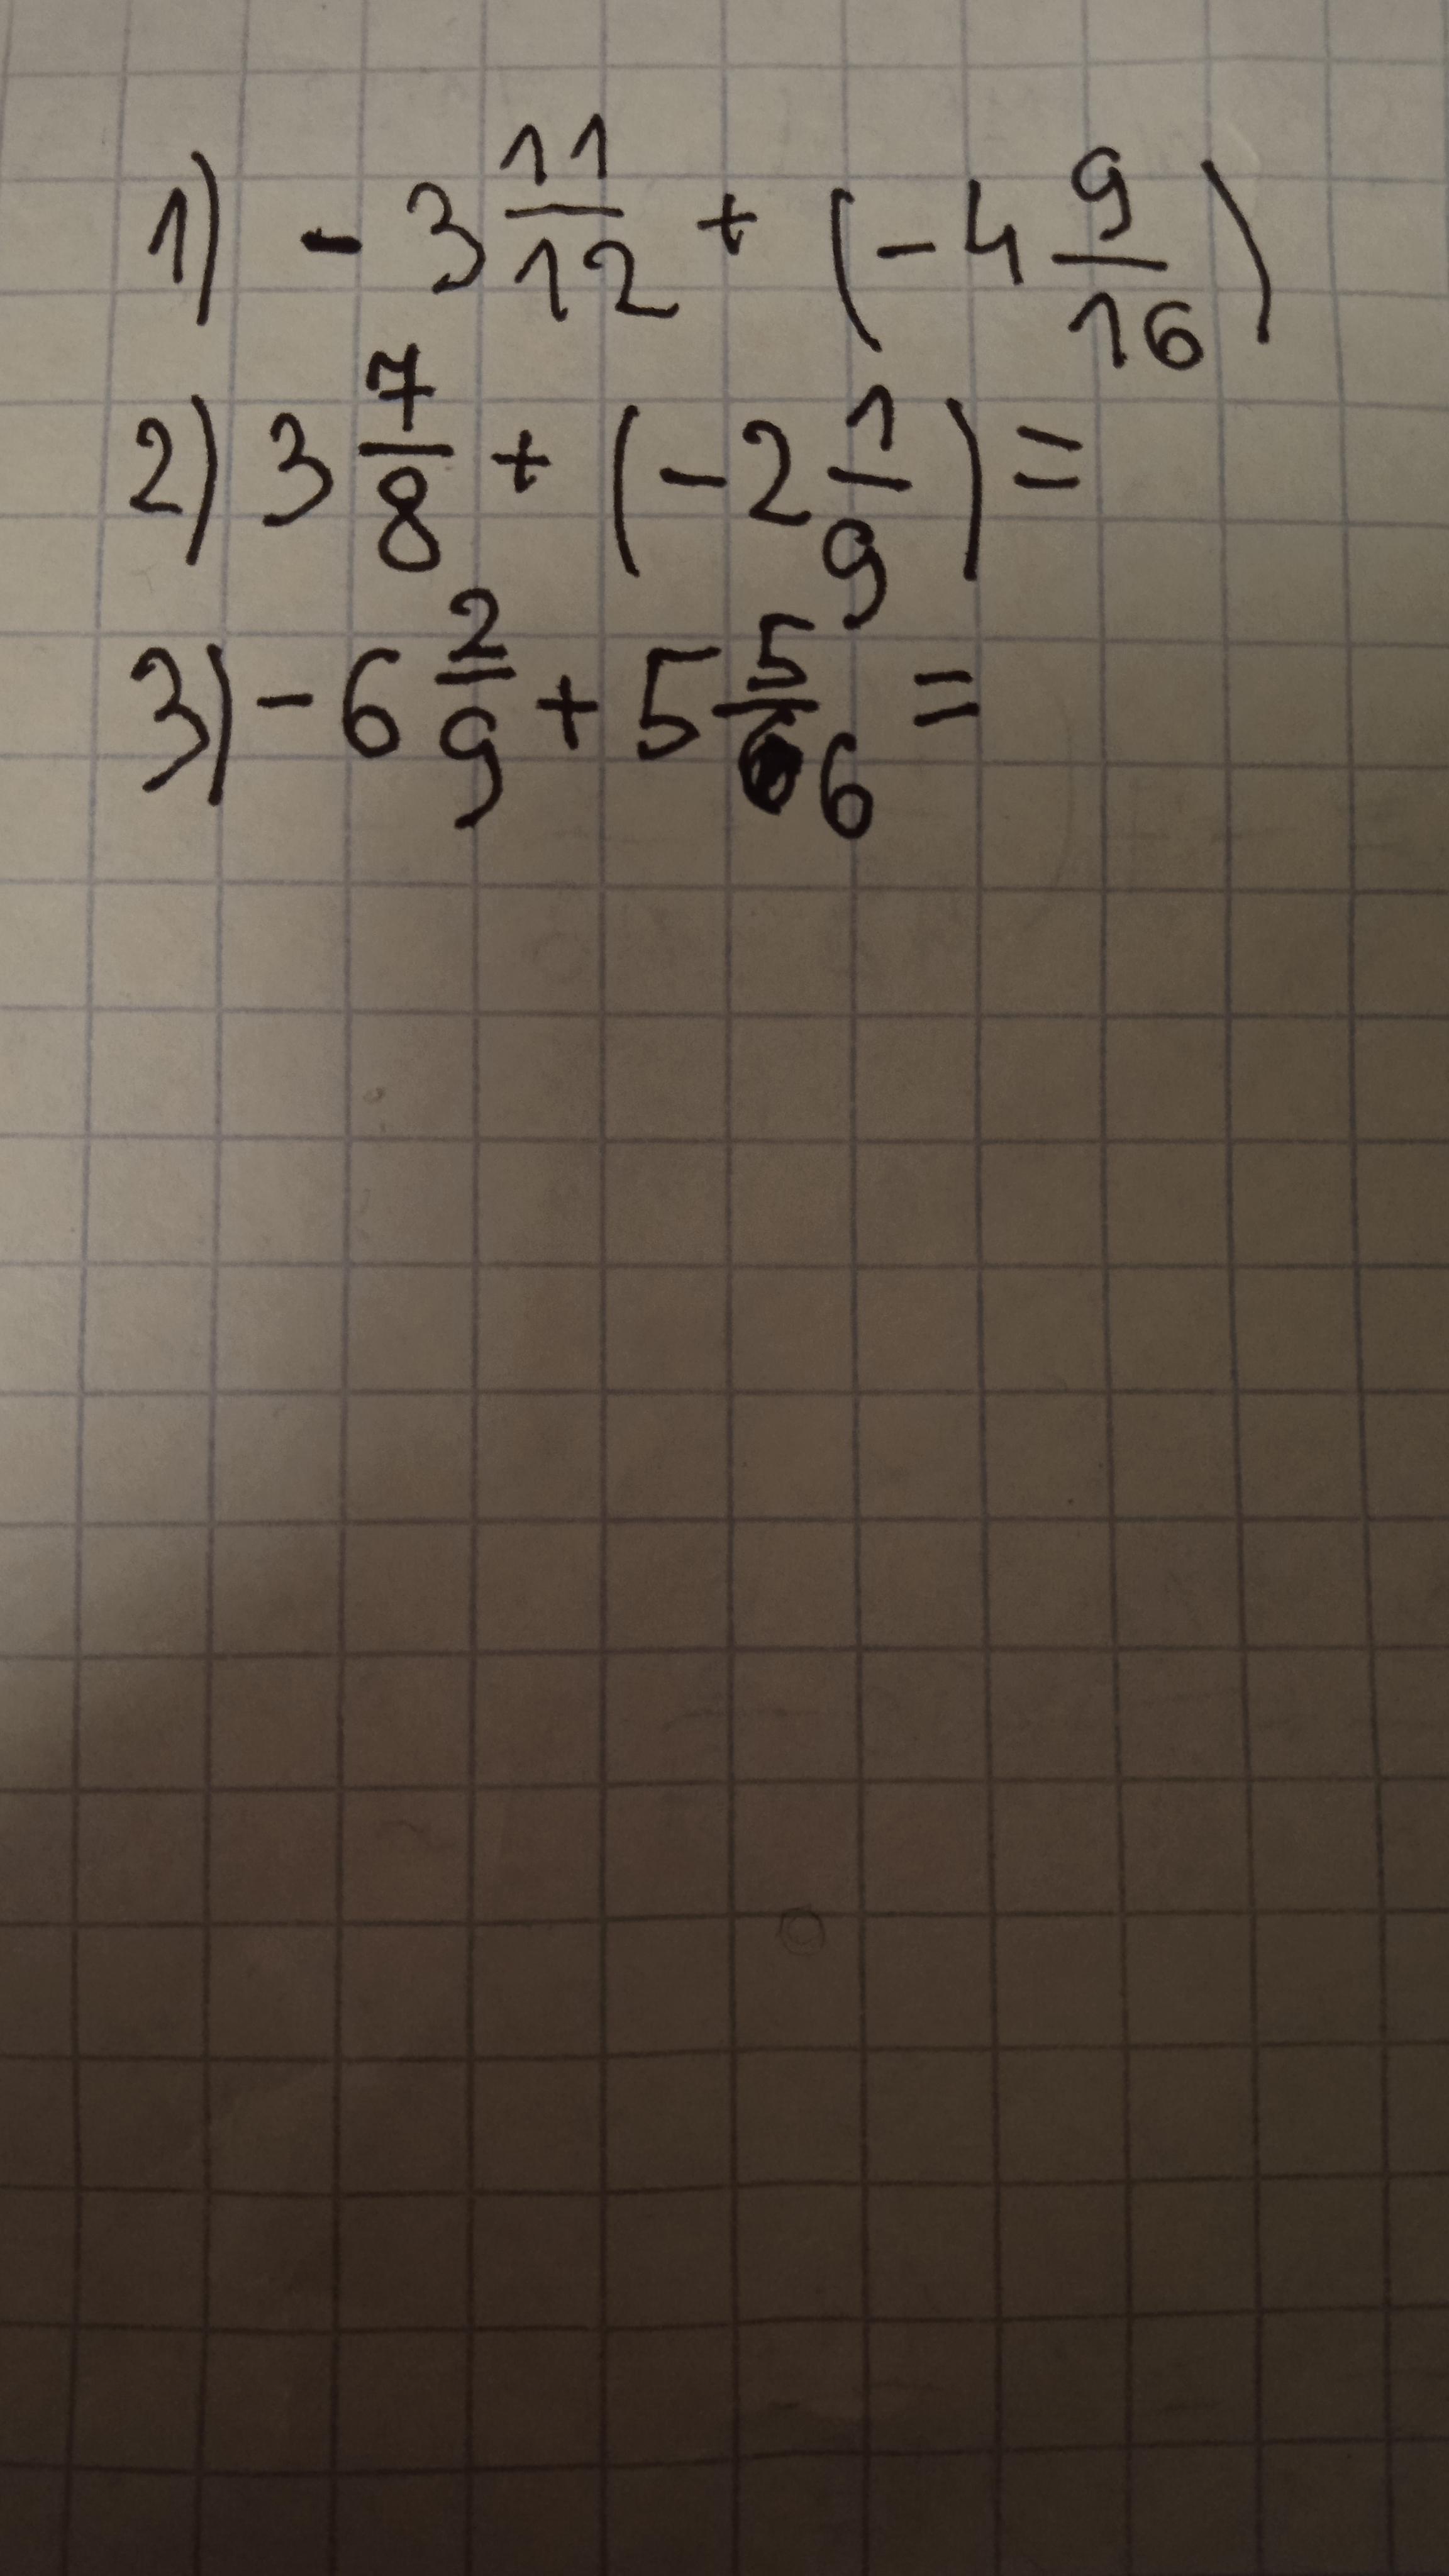 1) - 3 11/12 + (- 4 9/16)
2) 3 7/8 + (- 2 1/9) =
3) - 6 2/9 + 5 5/6 =